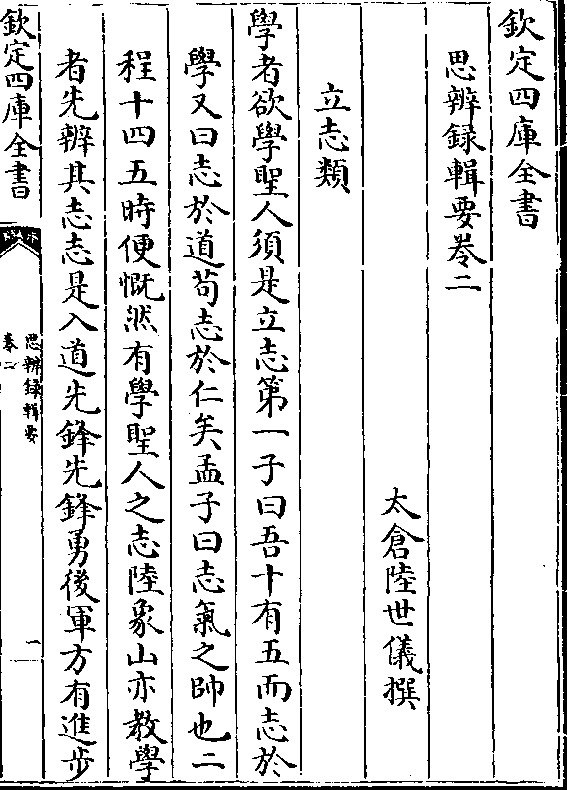 欽定四庫全書
思辨録輯要卷二
太倉陸世儀撰
立志類
學者欲學聖人須是立志第一子曰吾十有五而志於
學又曰志於道茍志於仁矣孟子曰志氣之帥也二
程十四五時便慨然有學聖人之志陸象山亦教學
者先辨其志志是入道先鋒先鋒勇後軍方有進步
欽定四庫全書
思辨録輯要
卷二
一